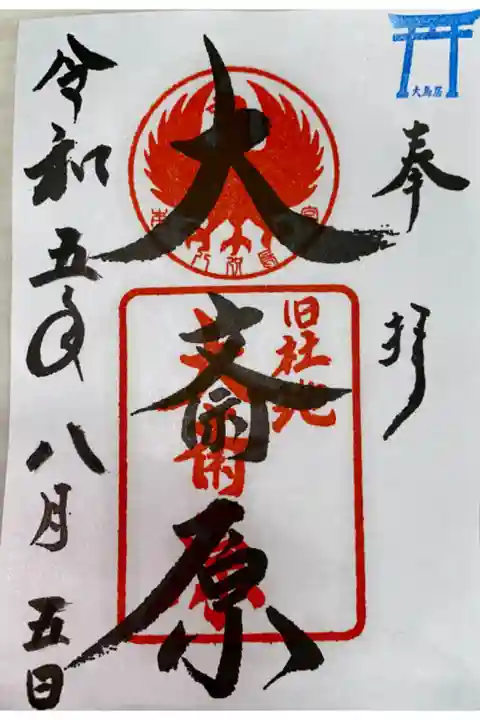 大鳥居
奉拝
旧社地
大斎原
令和五年八月五日